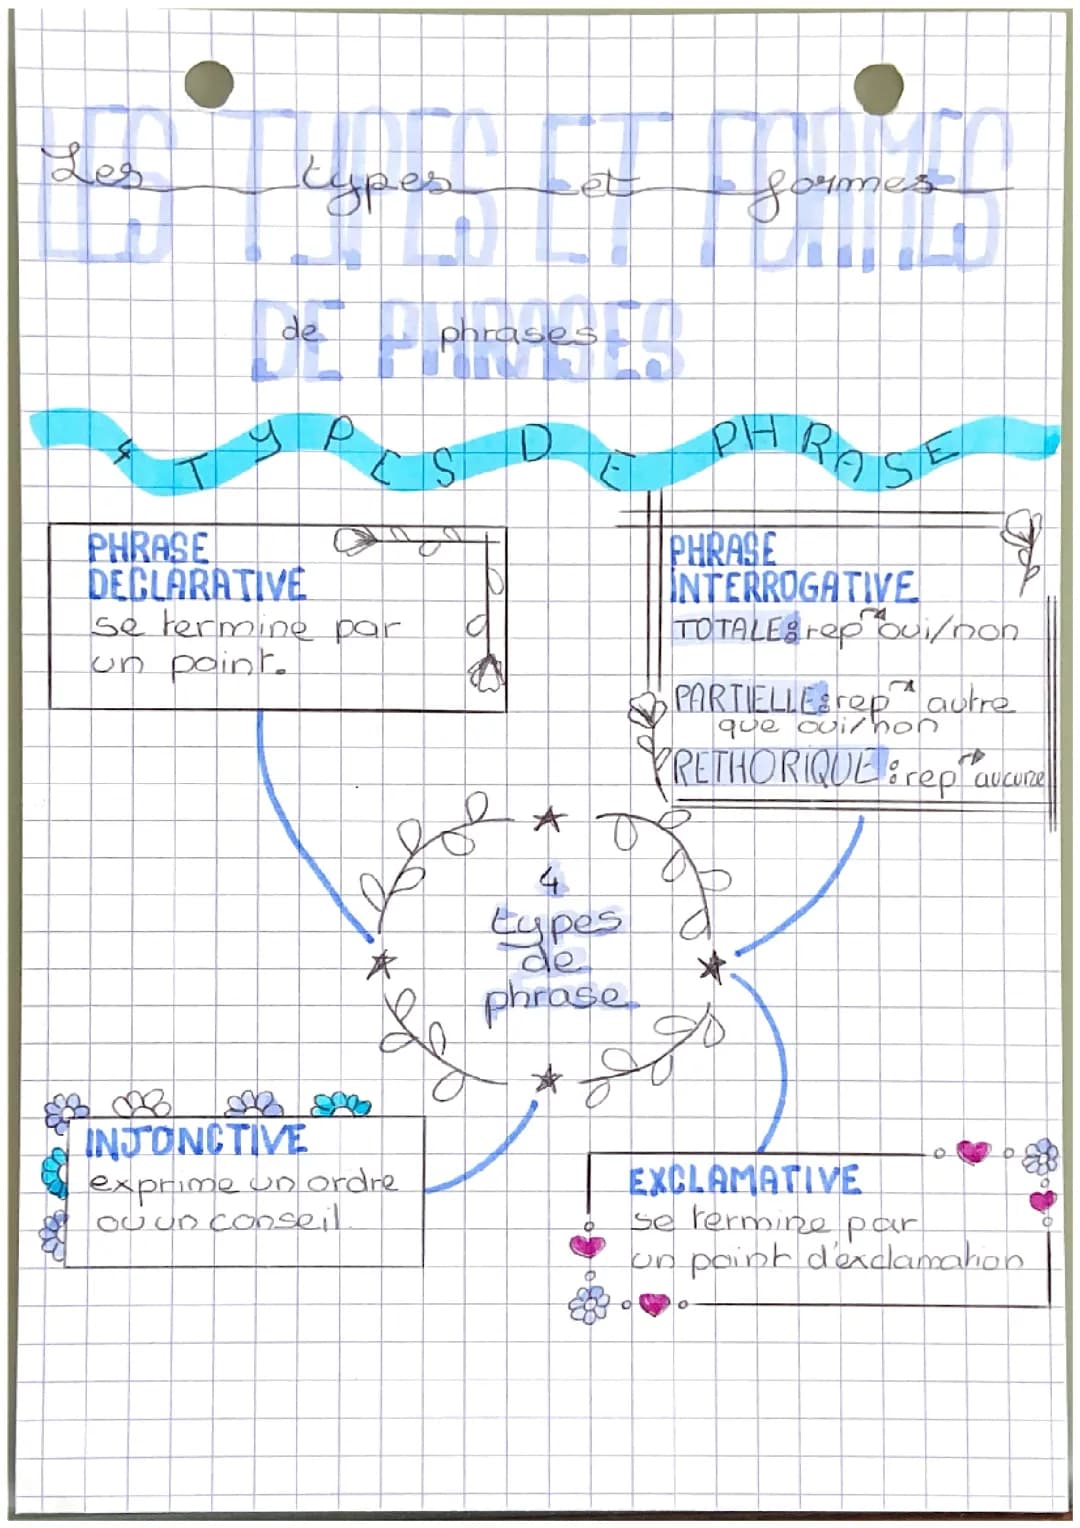 LES TYPES ET FORMES
Les types et formes
DE PHRASES
de phrases
4 TYPES DE PHRASE
PHRASE
DECLARATIVE
se termine par
un point.
PHRASE
INTERROGATIVE
TOTALE : rep oui/non
PARTIELLE : rep autre
que oui/non
RETHORIQUE : rep aucune
4
types
de
phrase
INJONCTIVE
exprime un ordre
ou un conseil.
EXCLAMATIVE
se termine par
un point d'exclamation